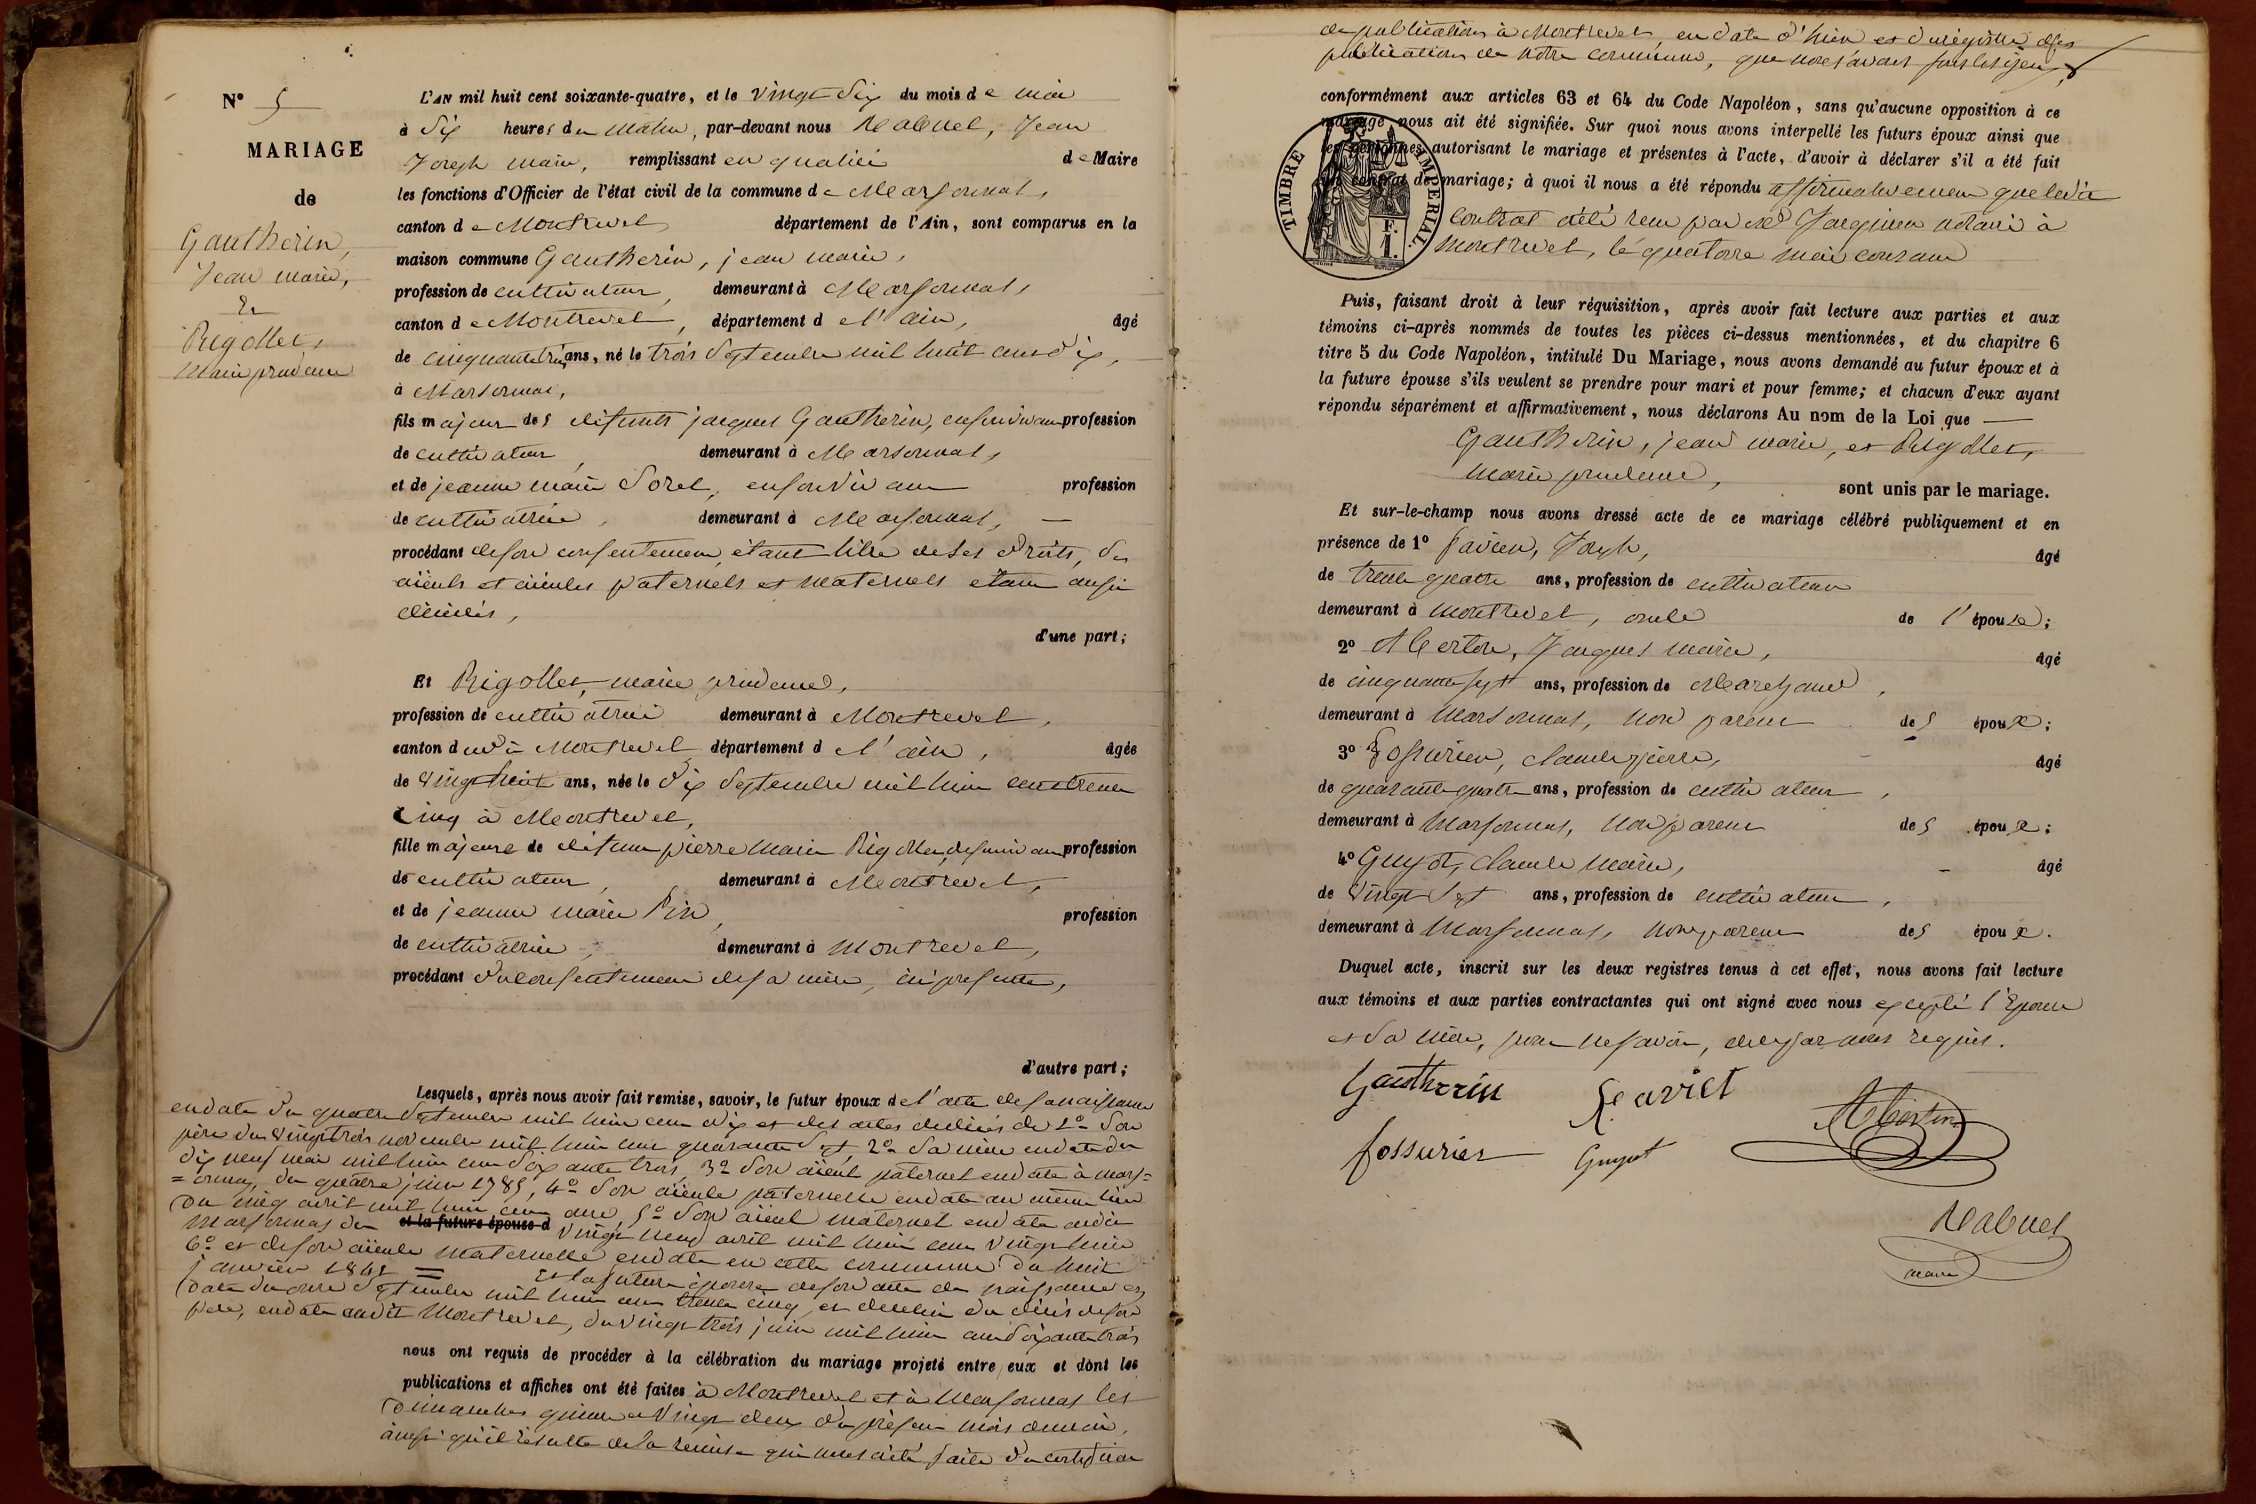 N° 5
MARIAGE
de
Gautherin,
Jean marie,
&
Rigollet,
Marie prudence
L'AN mil huit cent soixante-quatre, et le vingt six du mois de mai
à dix heures du matin, par-devant nous Rabuel, Jean
Joseph maire, remplissant en qualité de Maire
les fonctions d'Officier de l'état civil de la commune de Marsonnas,
canton de Montrevel département de l'Ain, sont comparus en la
maison commune Gautherin, jean marie,
profession de cultivateur, demeurant à Marsonnas,
canton de Montrevel, département de l'ain, âgé
de cinquante trois ans, né le trois Septembre mil huit cent dix,
à Marsonnas,
fils majeur des défunts jacques Gautherin, en son vivant profession
de cultivateur, demeurant à Marsonnas,
et de jeanne marie Sorel, en son vivant profession
de cultivatrice, demeurant à Marsonnas,
procédant de son consentement étant libre de ses droits, ses
aïeuls et aïeules paternels et maternels étant aussi
décédés,
d'une part;
Et Rigollet, marie prudence,
profession de cultivatrice demeurant à Montrevel,
canton dudit Montrevel département de l'ain, âgée
de vingt huit ans, née le dix Septembre mil huit cent trente
cinq à Montrevel,
fille majeure de défunt pierre Marie Rigollet, de son vivant profession
de cultivateur, demeurant à Montrevel,
et de jeanne marie Pin, profession
de cultivatrice, demeurant à Montrevel,
procédant du consentement de sa mère, ici présente,
d'autre part;
Lesquels, après nous avoir fait remise, savoir, le futur époux de l'acte de sa naissance
en date du quatre Septembre mil huit cent dix et des actes de décès de 1° Son
père du vingt trois novembre mil huit cent quarante Sept, 2° Sa mère en date du
dix neuf mai mil huit cent Soixante trois, 3° Son aïeul paternel en date à mars=
=onnas, du quatre juin 1785, 4° Son aïeule paternelle en date au même lieu
du cinq avril mil huit cent onze, 5° Son aïeul maternel en date audit
Marsonnas du et la future épouse d vingt neuf avril mil huit cent vingt huit
6° et de son aïeule maternelle en date en cette commune du huit
janvier 1841 = Et la future épouse de son acte de naissance en
date du onze Septembre mil huit cent trente cinq, et de celui du décès de son
père, en date audit Montrevel, du vingt trois juin mil huit cent Soixante trois
nous ont requis de procéder à la célébration du mariage projeté entre eux et dont les
publications et affiches ont été faites à Montrevel et à Marsonnas les
Dimanches quinze et vingt deux du présent mois de mai,
ainsi qu'il résulte de la remise qui nous a été faite du certificat
de publications à Montrevel en date d'hier et du registre des
publications de notre commune, que nous avons sous les yeux,
conformément aux articles 63 et 64 du Code Napoléon, sans qu'aucune opposition à ce
mariage nous ait été signifiée. Sur quoi nous avons interpellé les futurs époux ainsi que
les personnes autorisant le mariage et présentes à l'acte, d'avoir à déclarer s'il a été fait
un contrat de mariage; à quoi il nous a été répondu affirmativement que ledit
Contrat a été reçu par Me Jacquier notaire à
Montrevel, le quatorze mai courant
TIMBRE IMPERIAL
F.
1.
Puis, faisant droit à leur réquisition, après avoir fait lecture aux parties et aux
témoins ci-après nommés de toutes les pièces ci-dessus mentionnées, et du chapitre 6
titre 5 du Code Napoléon, intitulé Du Mariage, nous avons demandé au futur époux et à
la future épouse s'ils veulent se prendre pour mari et pour femme; et chacun d'eux ayant
répondu séparément et affirmativement, nous déclarons Au nom de la Loi que
Gautherin, jean marie, et Rigollet,
marie prudence, sont unis par le mariage.
Et sur-le-champ nous avons dressé acte de ce mariage célébré publiquement et en
présence de 1° Joseph, âgé
de trente quatre ans, profession de cultivateur
demeurant à Montrevel, oncle de l'épouse;
2° Jacques marie, âgé
de cinquante sept ans, profession de Marchand,
demeurant à Marsonnas, non parent des époux;
3° Fossurier, claude pierre, âgé
de quarante quatre ans, profession de cultivateur,
demeurant à Marsonnas, non parent des époux;
4° Guyot, Claude Marie, âgé
de vingt Sept ans, profession de cultivateur,
demeurant à Marsonnas, non parent des époux.
Duquel acte, inscrit sur les deux registres tenus à cet effet, nous avons fait lecture
aux témoins et aux parties contractantes qui ont signé avec nous excepté l'Epouse
et Sa mère, pour ne savoir, de ce par nous requis.
Gautherin
Fossurier Guyot
Rabuel
maire